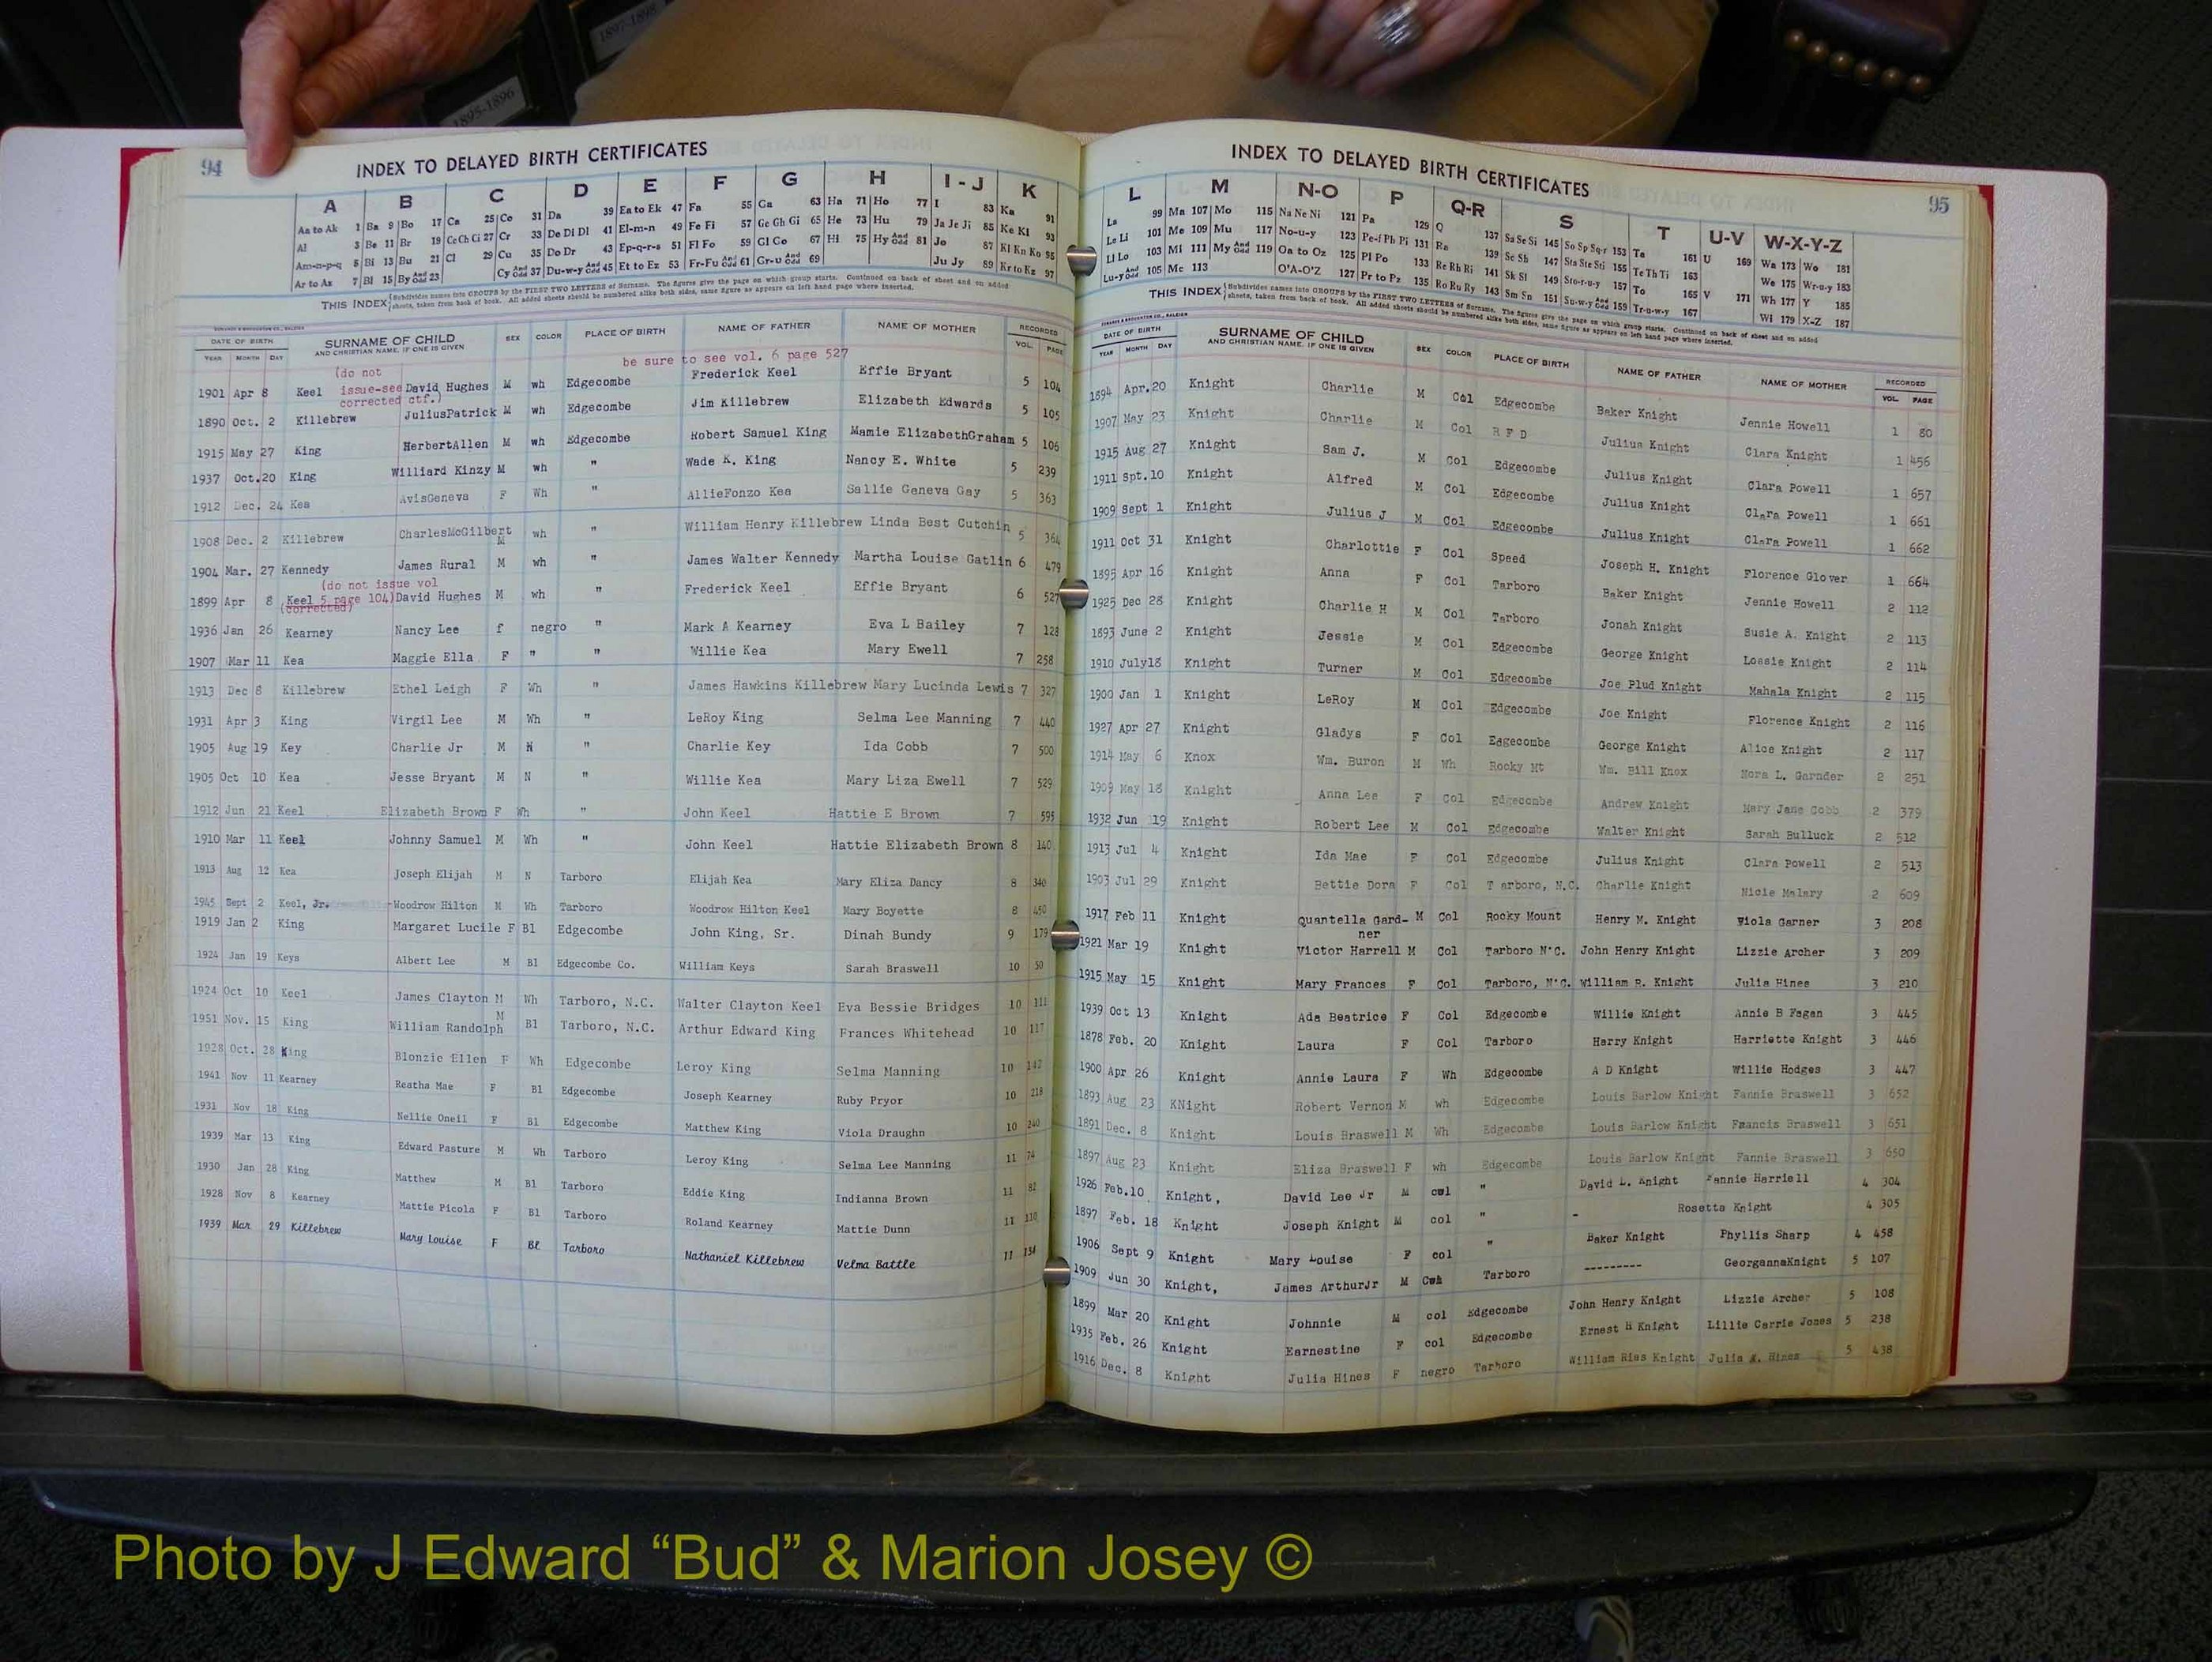 1897-1898
1895-1896
94
INDEX TO DELAYED BIRTH CERTIFICATES
A B C D E F G H I - J K
Aa to Ak 1 Ba 9 Bo 17 Ca 25 Co 31 Da 39 Ea to Ek 47 Fa 55 Ga 63 Ha 71 Ho 77 I 83 Ka 91
Al 3 Be 11 Br 19 Ce Ch Ci 27 Cr 33 De Di Dl 41 El-m-n 49 Fe Fi 57 Ge Gh Gi 65 He 73 Hu 79 Ja Je Ji 85 Ke Ki 93
Am-n-p-q 5 Bi 13 Bu 21 Cl 29 Cu 35 Do Dr 43 Ep-q-r-s 51 Fl Fo 59 Gl Go 67 Hi 75 Hy And Odd 81 Jo 87 Kl Kn Ko 95
Ar to Az 7 Bl 15 By And Odd 23 Cy And Odd 37 Du-w-y And Odd 45 Et to Ez 53 Fr-Fu And Odd 61 Gr-u And Odd 69 Ju Jy 89 Kr to Kz 97
THIS INDEX Subdivides names into GROUPS by the FIRST TWO LETTERS of Surname. The figures give the page on which group starts. Continued on back of sheet and on added
sheets, taken from back of book. All added sheets should be numbered alike both sides, same figure as appears on left hand page where inserted.
DATE OF BIRTH SURNAME OF CHILD SEX COLOR PLACE OF BIRTH NAME OF FATHER NAME OF MOTHER RECORDED
YEAR MONTH DAY AND CHRISTIAN NAME, IF ONE IS GIVEN VOL. PAGE
be sure to see vol. 6 page 527
(do not
issue-see
corrected ctf.)
1901 Apr 8 Keel David Hughes M wh Edgecombe Frederick Keel Effie Bryant 5 104
1890 Oct. 2 Killebrew JuliusPatrick M wh Edgecombe Jim Killebrew Elizabeth Edwards 5 105
1915 May 27 King HerbertAllen M wh Edgecombe Robert Samuel King Mamie ElizabethGraham 5 106
1937 Oct.20 King Williard Kinzy M wh " Wade K. King Nancy E. White 5 239
1912 Dec. 24 Kea AvisGeneva F Wh " AllieFonzo Kea Sallie Geneva Gay 5 363
1908 Dec. 2 Killebrew CharlesMcGilbert M wh " William Henry Killebrew Linda Best Cutchin 5 364
1904 Mar. 27 Kennedy James Rural M wh " James Walter Kennedy Martha Louise Gatlin 6 479
(do not issue vol
1899 Apr 8 Keel 5 page 104) David Hughes M wh " Frederick Keel Effie Bryant 6 527
(corrected)
1936 Jan 26 Kearney Nancy Lee f negro " Mark A Kearney Eva L Bailey 7 128
1907 Mar 11 Kea Maggie Ella F " " Willie Kea Mary Ewell 7 258
1913 Dec 8 Killebrew Ethel Leigh F Wh " James Hawkins Killebrew Mary Lucinda Lewis 7 327
1931 Apr 3 King Virgil Lee M Wh " LeRoy King Selma Lee Manning 7 440
1905 Aug 19 Key Charlie Jr M N " Charlie Key Ida Cobb 7 500
1905 Oct 10 Kea Jesse Bryant M N " Willie Kea Mary Liza Ewell 7 529
1912 Jun 21 Keel Elizabeth Brown F Wh " John Keel Hattie E Brown 7 595
1910 Mar 11 Keel Johnny Samuel M Wh " John Keel Hattie Elizabeth Brown 8 140
1913 Aug 12 Kea Joseph Elijah M N Tarboro Elijah Kea Mary Eliza Dancy 8 340
1945 Sept 2 Keel, Jr. Woodrow Hilton M Wh Tarboro Woodrow Hilton Keel Mary Boyette 8 450
1919 Jan 2 King Margaret Lucile F Bl Edgecombe John King, Sr. Dinah Bundy 9 179
1924 Jan 19 Keys Albert Lee M Bl Edgecombe Co. William Keys Sarah Braswell 10 50
1924 Oct 10 Keel James Clayton M Wh Tarboro, N.C. Walter Clayton Keel Eva Bessie Bridges 10 111
1951 Nov. 15 King William Randolph M Bl Tarboro, N.C. Arthur Edward King Frances Whitehead 10 117
1928 Oct. 28 King Blonzie Ellen F Wh Edgecombe Leroy King Selma Manning 10 147
1941 Nov 11 Kearney Reatha Mae F Bl Edgecombe Joseph Kearney Ruby Pryor 10 218
1931 Nov 18 King Nellie Oneil F Bl Edgecombe Matthew King Viola Draughn 10 240
1939 Mar 13 King Edward Pasture M Wh Tarboro Leroy King Selma Lee Manning 11 74
1930 Jan 28 King Matthew M Bl Tarboro Eddie King Indianna Brown 11 82
1928 Nov 8 Kearney Mattie Picola F Bl Tarboro Roland Kearney Mattie Dunn 11 110
1939 Mar 29 Killebrew Mary Louise F Bl Tarboro Nathaniel Killebrew Velma Battle 11 134
95
INDEX TO DELAYED BIRTH CERTIFICATES
L M N-O P Q-R S T U-V W-X-Y-Z
La 99 Ma 107 Mo 115 Na Ne Ni 121 Pa 129 Q 137 Sa Sc Si 145 So Sp Sq-r 153 Ta 161 U 169 Wa 173 Wo 181
Le Li 101 Me 109 Mu 117 No-u-y 123 Pe-f Ph Pi 131 Ra 139 Se Sh 147 Sta Ste Sti 155 Te Th Ti 163 We 175 Wr-u-y 183
Ll Lo 103 Mi 111 My And Odd 119 Oa to Oz 125 Pl Po 133 Re Rh Ri 141 Sk Sl 149 Sto-r-u-y 157 To 165 V 171 Wh 177 Y 185
Lu-y And Odd 105 Mc 113 O'A-O'Z 127 Pr to Pz 135 Ro Ru Ry 143 Sm Sn 151 Su-w-y And Odd 159 Tr-u-w-y 167 Wi 179 X-Z 187
THIS INDEX Subdivides names into GROUPS by the FIRST TWO LETTERS of Surname. The figures give the page on which group starts. Continued on back of sheet and on added
sheets, taken from back of book. All added sheets should be numbered alike both sides, same figure as appears on left hand page where inserted.
DATE OF BIRTH SURNAME OF CHILD SEX COLOR PLACE OF BIRTH NAME OF FATHER NAME OF MOTHER RECORDED
YEAR MONTH DAY AND CHRISTIAN NAME, IF ONE IS GIVEN VOL. PAGE
1894 Apr.20 Knight Charlie M Col Edgecombe Baker Knight Jennie Howell 1 80
1907 May 23 Knight Charlie M Col R F D Julius Knight Clara Knight 1 456
1915 Aug 27 Knight Sam J. M Col Edgecombe Julius Knight Clara Powell 1 657
1911 Spt.10 Knight Alfred M Col Edgecombe Julius Knight Clara Powell 1 661
1909 Sept 1 Knight Julius J M Col Edgecombe Julius Knight Clara Powell 1 662
1911 Oct 31 Knight Charlottie F Col Speed Joseph H. Knight Florence Glover 1 664
1895 Apr 16 Knight Anna F Col Tarboro Baker Knight Jennie Howell 2 112
1925 Dec 28 Knight Charlie H M Col Tarboro Jonah Knight Susie A. Knight 2 113
1893 June 2 Knight Jessie M Col Edgecombe George Knight Lossie Knight 2 114
1910 July18 Knight Turner M Col Edgecombe Joe Plud Knight Mahala Knight 2 115
1900 Jan 1 Knight LeRoy M Col Edgecombe Joe Knight Florence Knight 2 116
1927 Apr 27 Knight Gladys F Col Edgecombe George Knight Alice Knight 2 117
1914 May 6 Knox Wm. Buron M Wh Rocky Mt Wm. Bill Knox Nora L. Garnder 2 251
1909 May 18 Knight Anna Lee F Col Edgecombe Andrew Knight Mary Jane Cobb 2 379
1932 Jun 19 Knight Robert Lee M Col Edgecombe Walter Knight Sarah Bulluck 2 512
1913 Jul 4 Knight Ida Mae F Col Edgecombe Julius Knight Clara Powell 2 513
1903 Jul 29 Knight Bettie Dora F Col T arboro, N.C. Charlie Knight Nicie Malary 2 609
1917 Feb 11 Knight Quantella Gard- M Col Rocky Mount Henry M. Knight Viola Garner 3 208
ner
1921 Mar 19 Knight Victor Harrell M Col Tarboro N.C. John Henry Knight Lizzie Archer 3 209
1915 May 15 Knight Mary Frances F Col Tarboro, N.C. William R. Knight Julia Hines 3 210
1939 Oct 13 Knight Ada Beatrice F Col Edgecombe Willie Knight Annie B Fagan 3 445
1878 Feb. 20 Knight Laura F Col Tarboro Harry Knight Harriette Knight 3 446
1900 Apr 26 Knight Annie Laura F Wh Edgecombe A D Knight Willie Hodges 3 447
1893 Aug 23 KNight Robert Vernon M wh Edgecombe Louis Barlow Knight Fannie Braswell 3 652
1891 Dec. 8 Knight Louis Braswell M Wh Edgecombe Louis Barlow Knight Francis Braswell 3 651
1897 Aug 23 Knight Eliza Braswell F wh Edgecombe Louis Barlow Knight Fannie Braswell 3 650
1926 Feb.10 Knight, David Lee Jr M col " David L. Knight Fannie Harriell 4 304
1897 Feb. 18 Knight Joseph Knight M col " - Rosetta Knight 4 305
1906 Sept 9 Knight Mary Louise F col " Baker Knight Phyllis Sharp 4 458
1909 Jun 30 Knight, James ArthurJr M Tarboro --------- GeorgannaKnight 5 107
1899 Mar 20 Knight Johnnie M col Edgecombe John Henry Knight Lizzie Archer 5 108
1935 Feb. 26 Knight Earnestine F col Edgecombe Ernest H Knight Lillie Carrie Jones 5 238
1916 Dec. 8 Knight Julia Hines F negro Tarboro William Ries Knight Julia Hines 5 438
Photo by J Edward “Bud” & Marion Josey ©